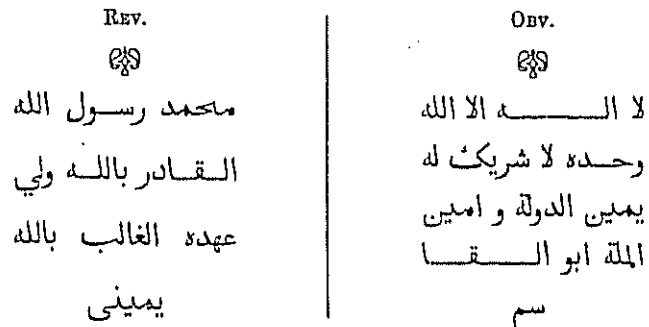 REV.
محمد رسول الله
القادر بالله ولي
عهده الغالب بالله
يميني
OBV.
لا اله الا الله
وحده لا شريك له
يمين الدولة و امين
الملة ابو القا
سم